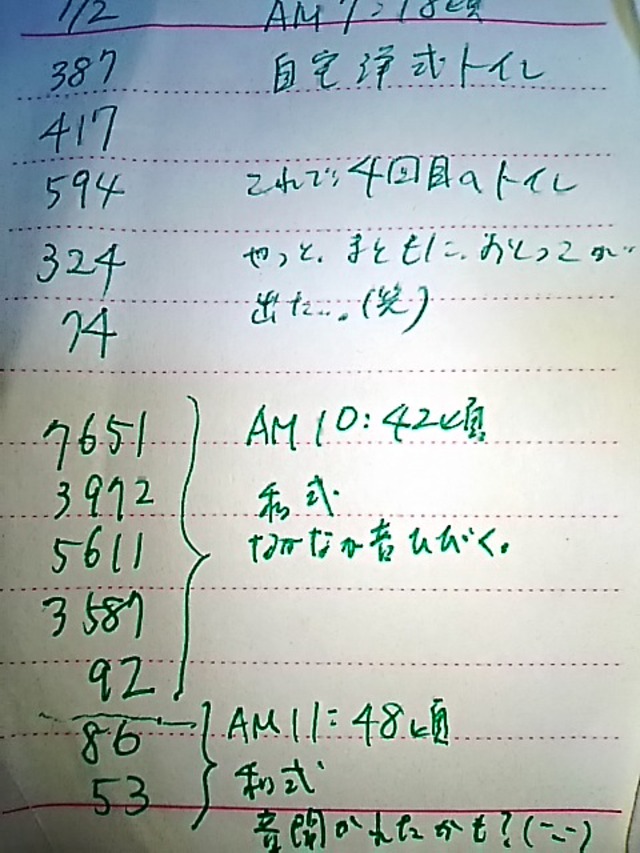 1/2 AM 7:18頃
387 自宅洋式トイレ
417
594 これで、4回目のトイレ
324 やっと、まともに、おとっこが
74 出た…。(笑)
7651 AM 10:42頃
3972 和式
5611 なかなか音ひびく。
3587
92
86 AM 11:48頃
53 和式
音聞かれたかも?(-_-)